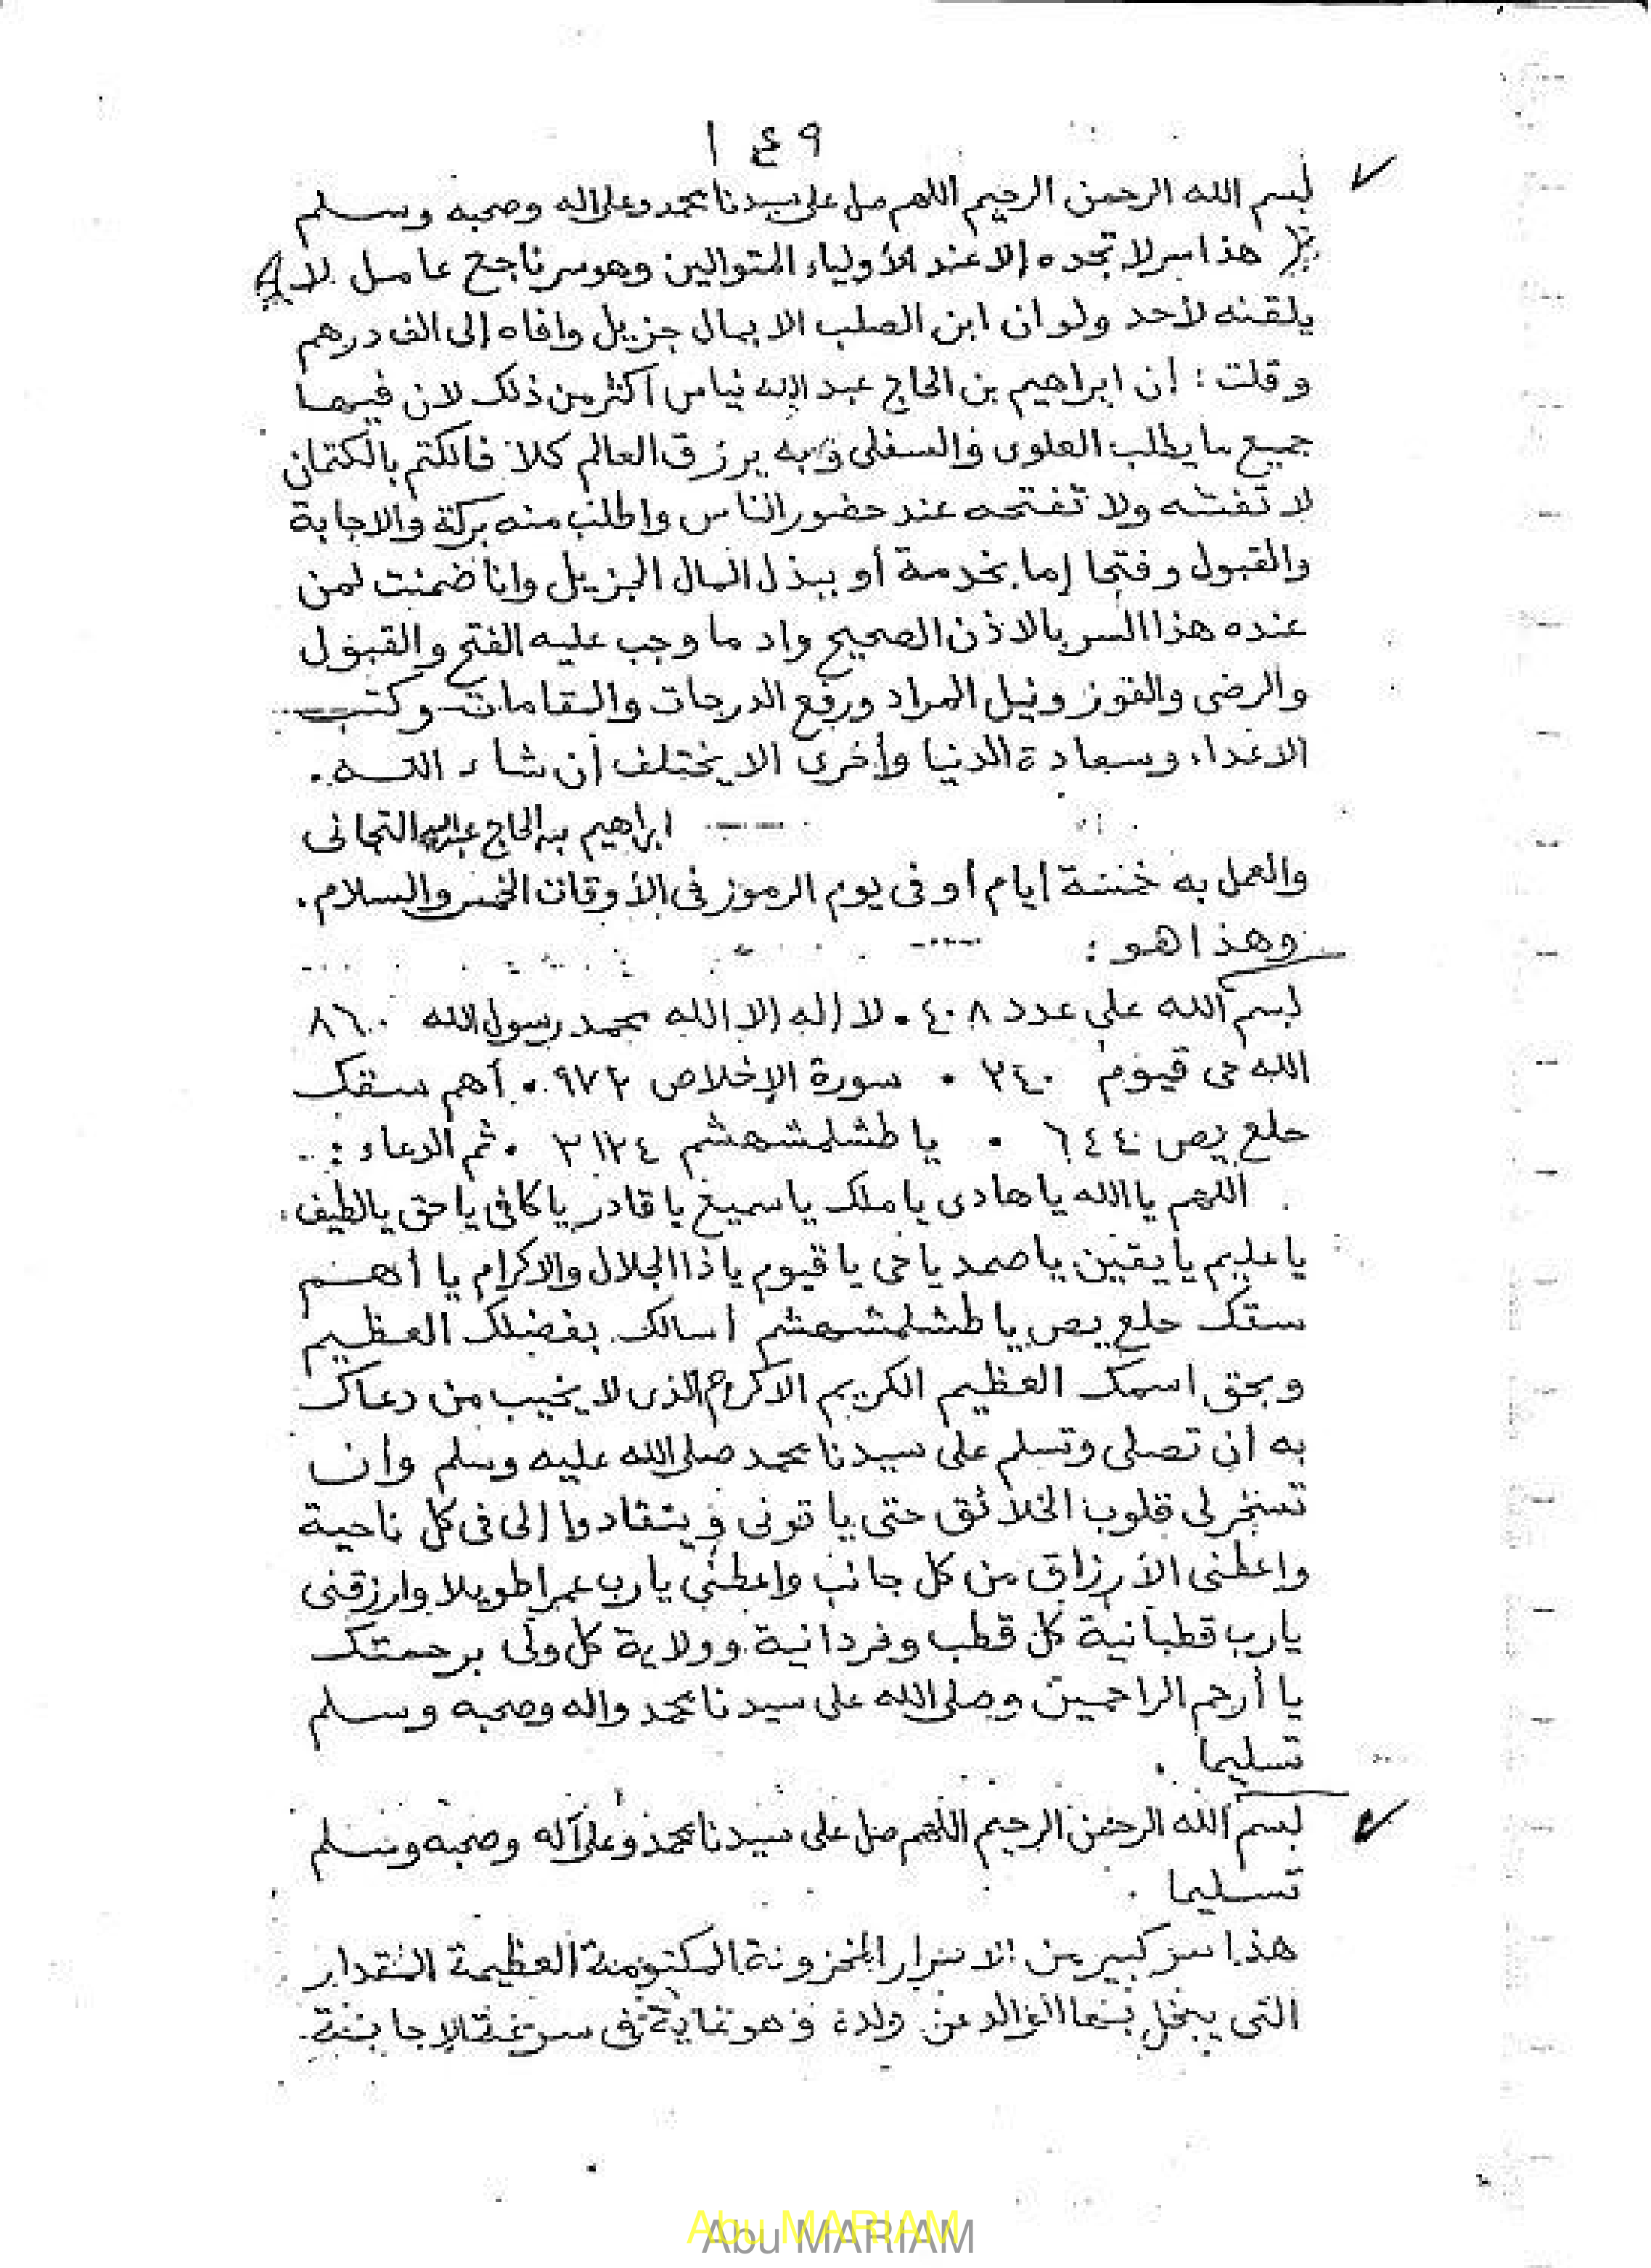 ١٤٩
بسم الله الرحمن الرحيم اللهم صل على سيدنا محمد وعلى اله وصحبه وسلم
هذا سر لا تجده إلا عند الأولياء المتوالين وهو سر ناجح عامل لا
يلقنه لأحد ولو ان ابن الصلب الا بمال جزيل وافاه إلى الف درهم
وقلت : إن ابراهيم بن الحاج عبد الله نياس أكثر من ذلك لان فيها
جميع ما يطلب العلوى والسفلى وبه يرزق العالم كلا فالكتم بالكتمان
لا تفشه ولا تفتحه عند حضور الناس واطلب منه بركة والاجابة
والقبول وفتحا إما بخدمة أو ببذل المال الجزيل وانا ضمنت لمن
عنده هذا السر بالاذن الصحيح واد ما وجب عليه الفتح والقبول
والرضى والفوز ونيل المراد ورفع الدرجات والمقامات وكتب
الاعداء وسعادة الدنيا وأخرى الا يختلف إن شاء الله .
ابراهيم بن الحاج عبد الله التجانى
والعمل به خمسة ايام أو فى يوم الرموز فى الأوقات الخمس والسلام .
وهذا هو :
بسم الله على عدد ٤٠٨ . لا إله إلا الله محمد رسول الله ٨٦٠
الله حى قيوم ٣٤٠ . سورة الإخلاص ٩٧٣ . أهم سقك
حلع يص ٦٤٤ . يا طشلمشهشم ٢١٢٤ . ثم الدعاء :
اللهم يا الله يا هادى يا ملك يا سميع يا قادر يا كافى يا حق يا لطيف
يا عليم يا يقين يا صمد يا حى يا قيوم يا ذا الجلال والاكرام يا أهم
سقك حلع يص يا طشلمشهشم اسالك بفضلك العظيم
وبحق اسمك العظيم الكريم الاكرم الذى لا يخيب من دعاك
به أن تصلى وتسلم على سيدنا محمد صلى الله عليه وسلم وأن
تسخر لى قلوب الخلائق حتى ياتونى وينقادوا إلى فى كل ناحية
واعطنى الأرزاق من كل جانب واعطنى يا رب عمرا طويلا وارزقنى
يا رب قطبانية كل قطب وفردانية وولاية كل ولى برحمتك
يا أرحم الراحمين وصلى الله على سيدنا محمد واله وصحبه وسلم
تسليما .
بسم الله الرحمن الرحيم اللهم صل على سيدنا محمد وعلى آله وصحبه وسلم
تسليما .
هذا سر كبير من الاسرار المخزونة المكتومة العظيمة المقدار
التى يبخل بها الوالد عن ولده وهو غاية فى سرعة الإجابة .
Abu MARIAM
Abu MARIAM